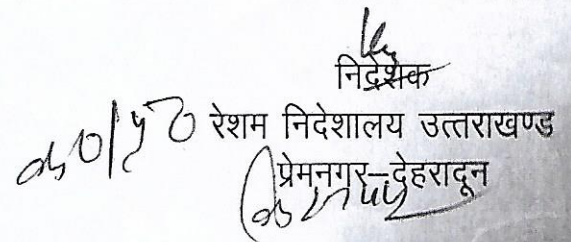 निदेशक
रेशम निदेशालय उत्तराखण्ड
प्रेमनगर–देहरादून